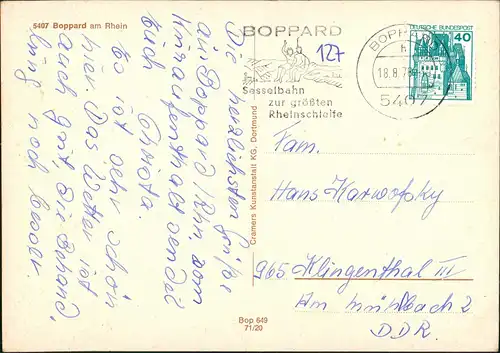 5407 Boppard am Rhein
BOPPARD
127
Sesselbahn
zur größten
Rheinschleife
BOPPARD
h
18.8.78
5407
DEUTSCHE BUNDESPOST
40
Die herzlichsten Grüße
aus Boppard/Rhn. vom
Kuraufenthalt sendet
Euch
Christa.
Es ist sehr schön
hier. Das Wetter ist
auch gut, die Behand,
lung noch besser.
Cramers Kunstanstalt KG, Dortmund
Fam.
Hans Karwofsky
965 Klingenthal III
Am Mühlbach 2
DDR
Bop 649
71/20